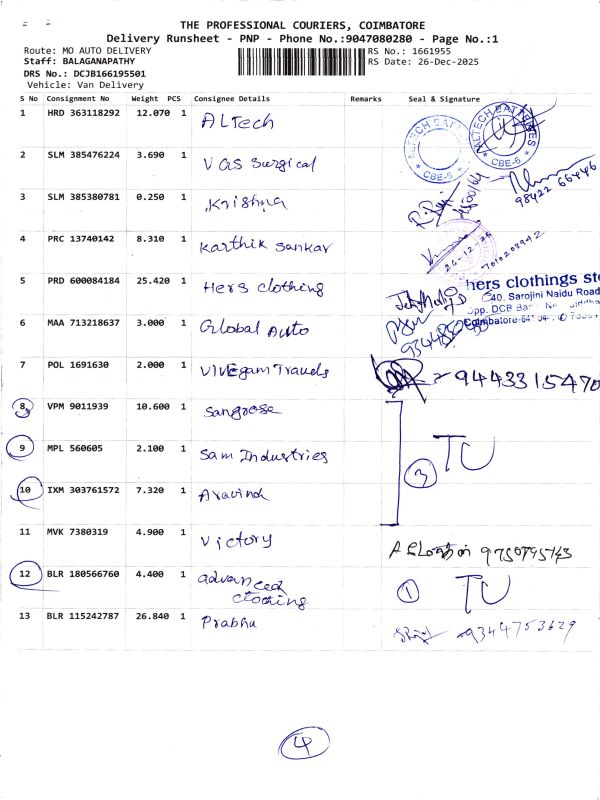 THE PROFESSIONAL COURIERS, COIMBATORE
Delivery Runsheet - PNP - Phone No.:9047080280 - Page No.:1
Route: MO AUTO DELIVERY
RS No.: 1661955
Staff: BALAGANAPATHY
RS Date: 26-Dec-2025
DRS No.: DCJB166195501
Vehicle: Van Delivery
S No Consignment No Weight PCS Consignee Details Remarks Seal & Signature
1 HRD 363118292 12.070 1 ALTech
2 SLM 385476224 3.690 1 Vas Surgical
98422 66446
3 SLM 385380781 0.250 1 Krishna
4 PRC 13740142 8.310 1 Karthik Sankar
26-12-25
7010208942
5 PRD 600084184 25.420 1 Hers clothing
hers clothings
40. Sarojini Naidu Road
6 MAA 713218637 3.000 1 Global Auto
7 POL 1691630 2.000 1 Vivegam Travels
9443315470
8 VPM 9011939 10.600 1 Sangrose
9 MPL 560605 2.100 1 Sam Industries
3 TU
10 IXM 303761572 7.320 1 Aravind
11 MVK 7380319 4.900 1 Victory
12 BLR 180566760 4.400 1 advanced clothing
1 TU
13 BLR 115242787 26.840 1 Prabhu
9344753629
4